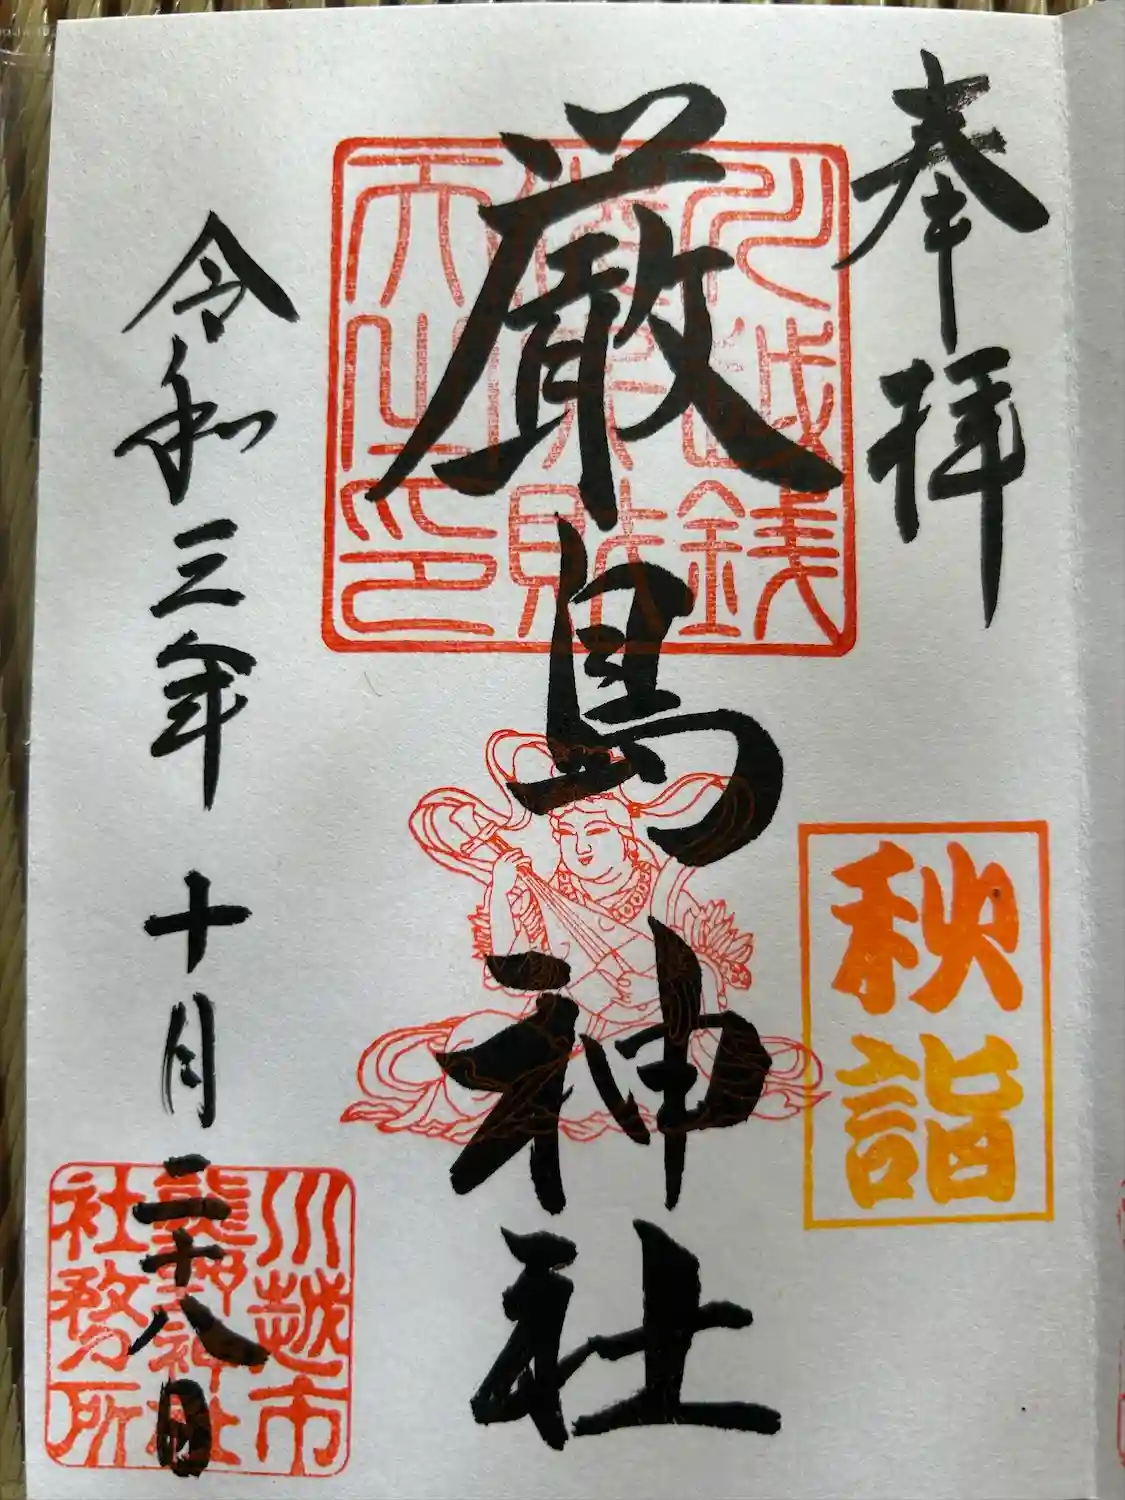 奉拝
秋詣
厳島神社
令和三年十月二十八日
川越市
熊野神社
社務所